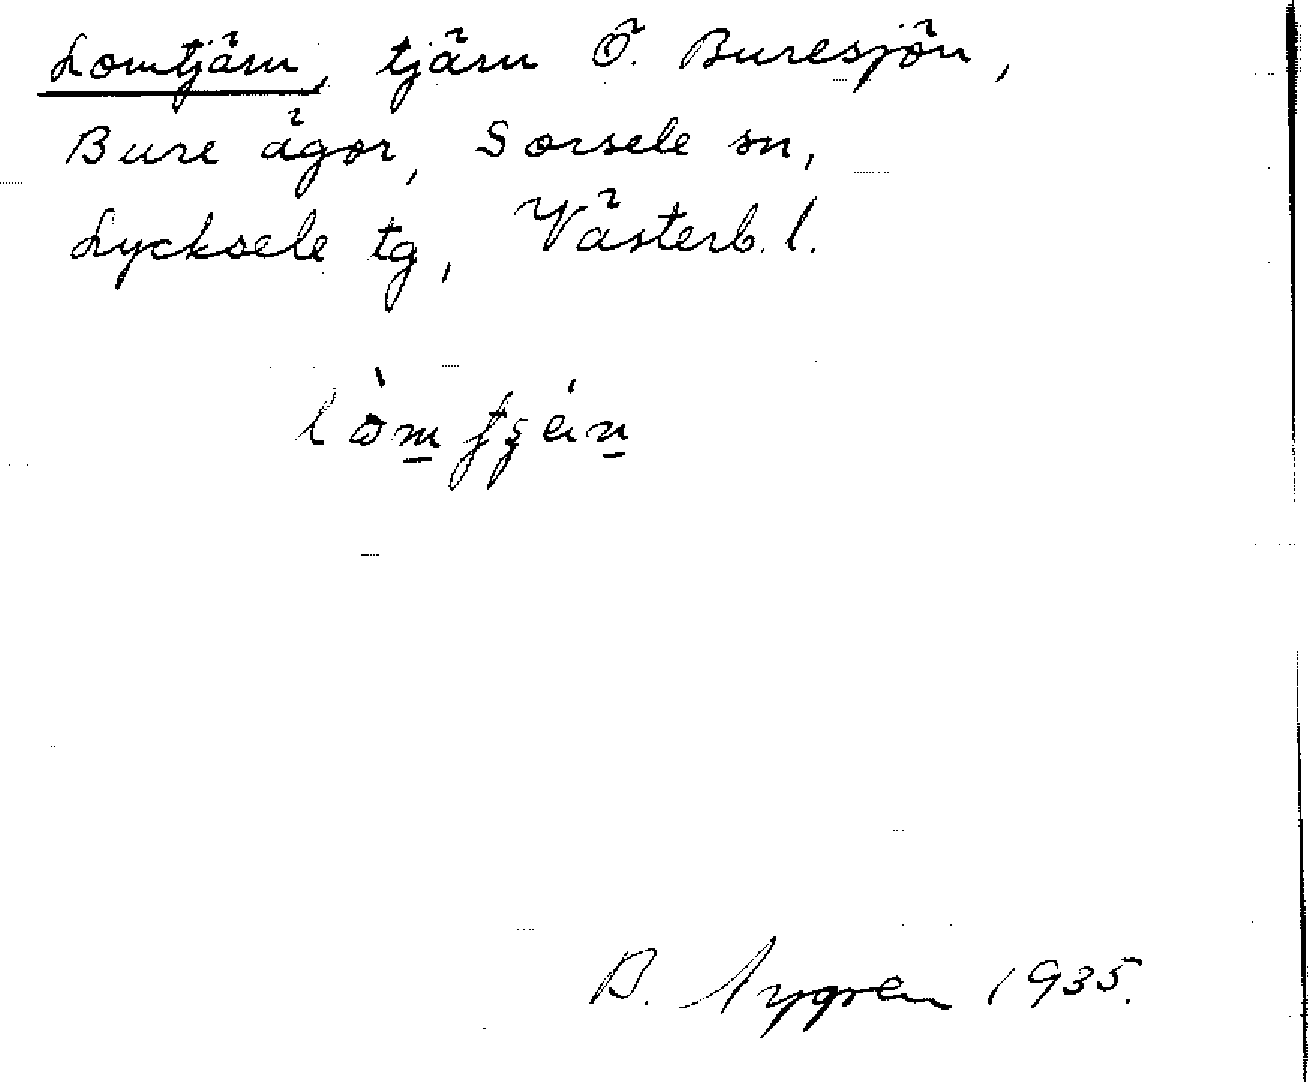 Lomtjärn, tjärn Ö. Buresjön,
Bure ägor, Sorsele sn,
Lycksele tg, Västerb. l.
B. Nygren 1935.